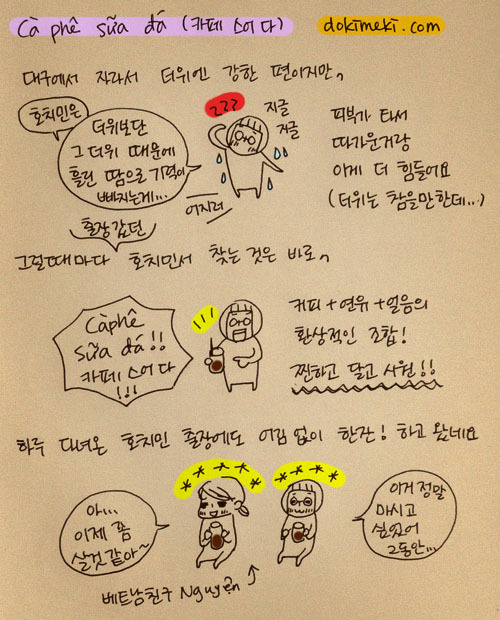 Cà phê sữa đá (카페 스어 다) dokimeki.com
대구에서 자라서 더위엔 강한 편이지만,
호치민은
더위보단
그 더위 때문에
흘린 땀으로 기력이
빠지는게...
ㄹㄹㄹ
지글
지글
어지러
피부가 타서
따가운거랑
이게 더 힘들어요
(더위는 참을만한데...)
출장갔던
그럴때마다 호치민서 찾는 것은 바로,
Cà phê
sữa đá!!
카페 스어 다
!!!
커피 + 연유 + 얼음의
환상적인 조합!
찐하고 달고 시원!!
하루 다녀온 호치민 출장에도 어김 없이 한잔! 하고 왔네요
아...
이제 좀
살것 같아~
이거 정말
마시고
싶었어
그동안...
베트남친구 Nguyện